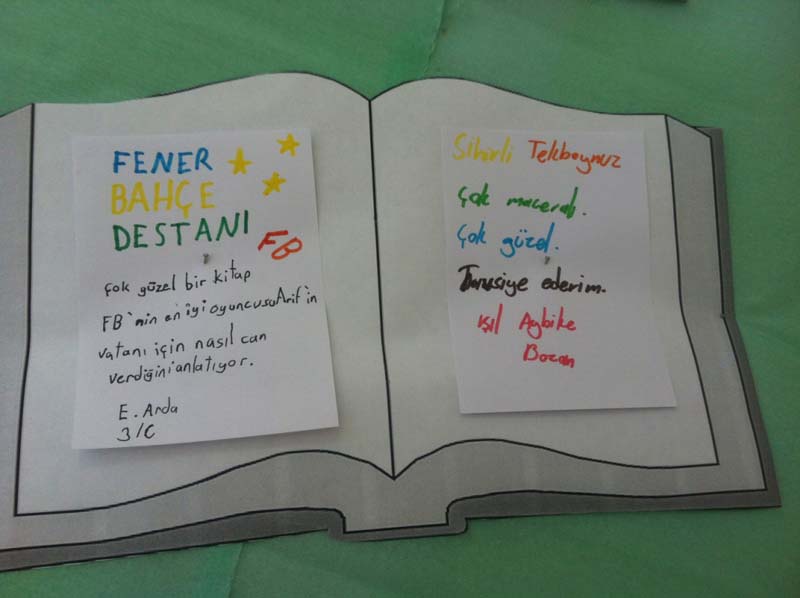 FENER
BAHÇE
DESTANI
FB
Çok güzel bir kitap
FB'nin en iyi oyuncusu Arif'in
vatanı için nasıl can
verdiğini anlatıyor.
E. Arda
3/C
Sihirli Tekboynuz
Çok maceralı.
Çok güzel.
Tavsiye ederim.
Işıl Aybike
Bozan